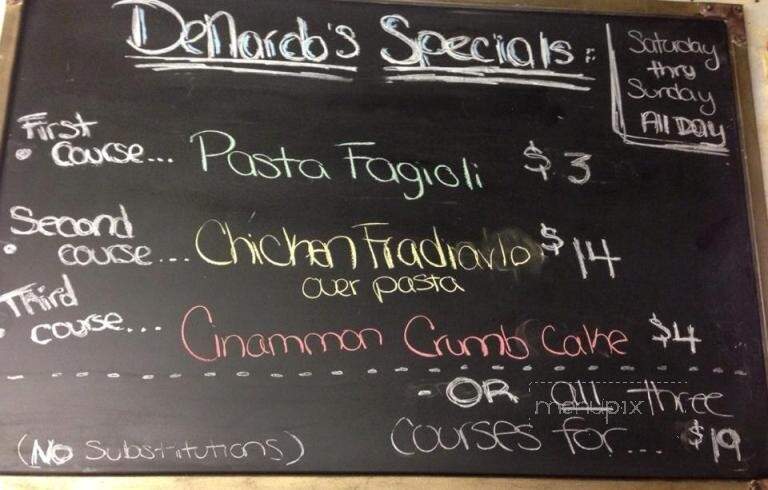 DeNardo's Specials:
Saturday
thru
Sunday
All Day
First
• Course... Pasta Fagioli $3
Second
• course... Chicken Fradiavlo $14
over pasta
Third
• course... Cinammon Crumb Cake $4
- OR all three
courses for... $19
(No Substitutions)
menupix